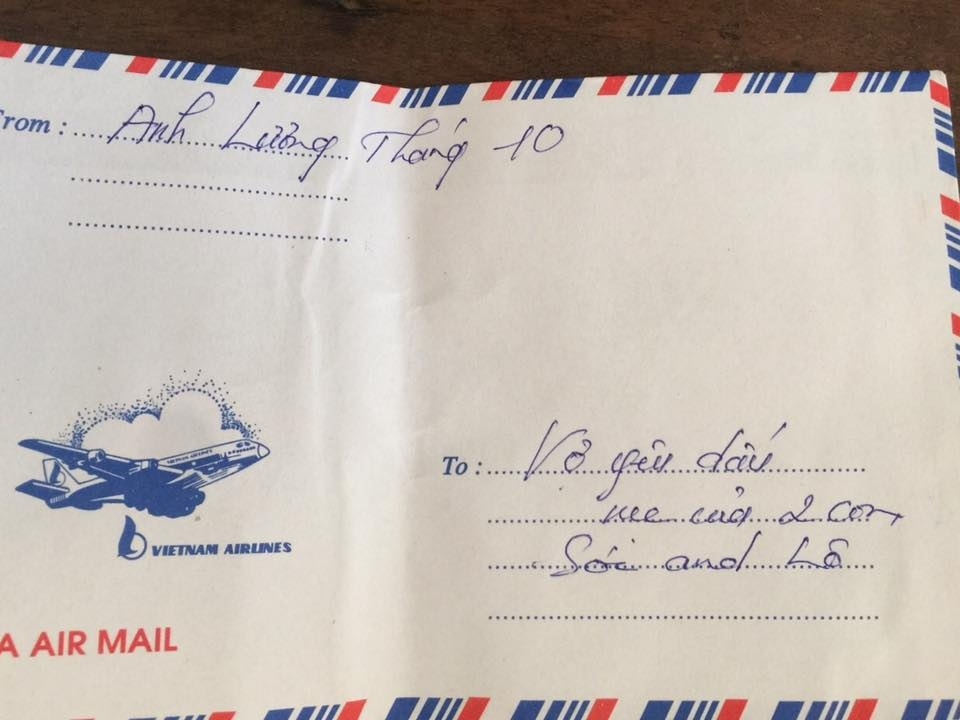 From : Anh Lương Tháng 10
VIETNAM AIRLINES
VIETNAM AIRLINES
To : Vợ yêu dấu
mẹ của 2 con
Sóc and Lô
A AIR MAIL